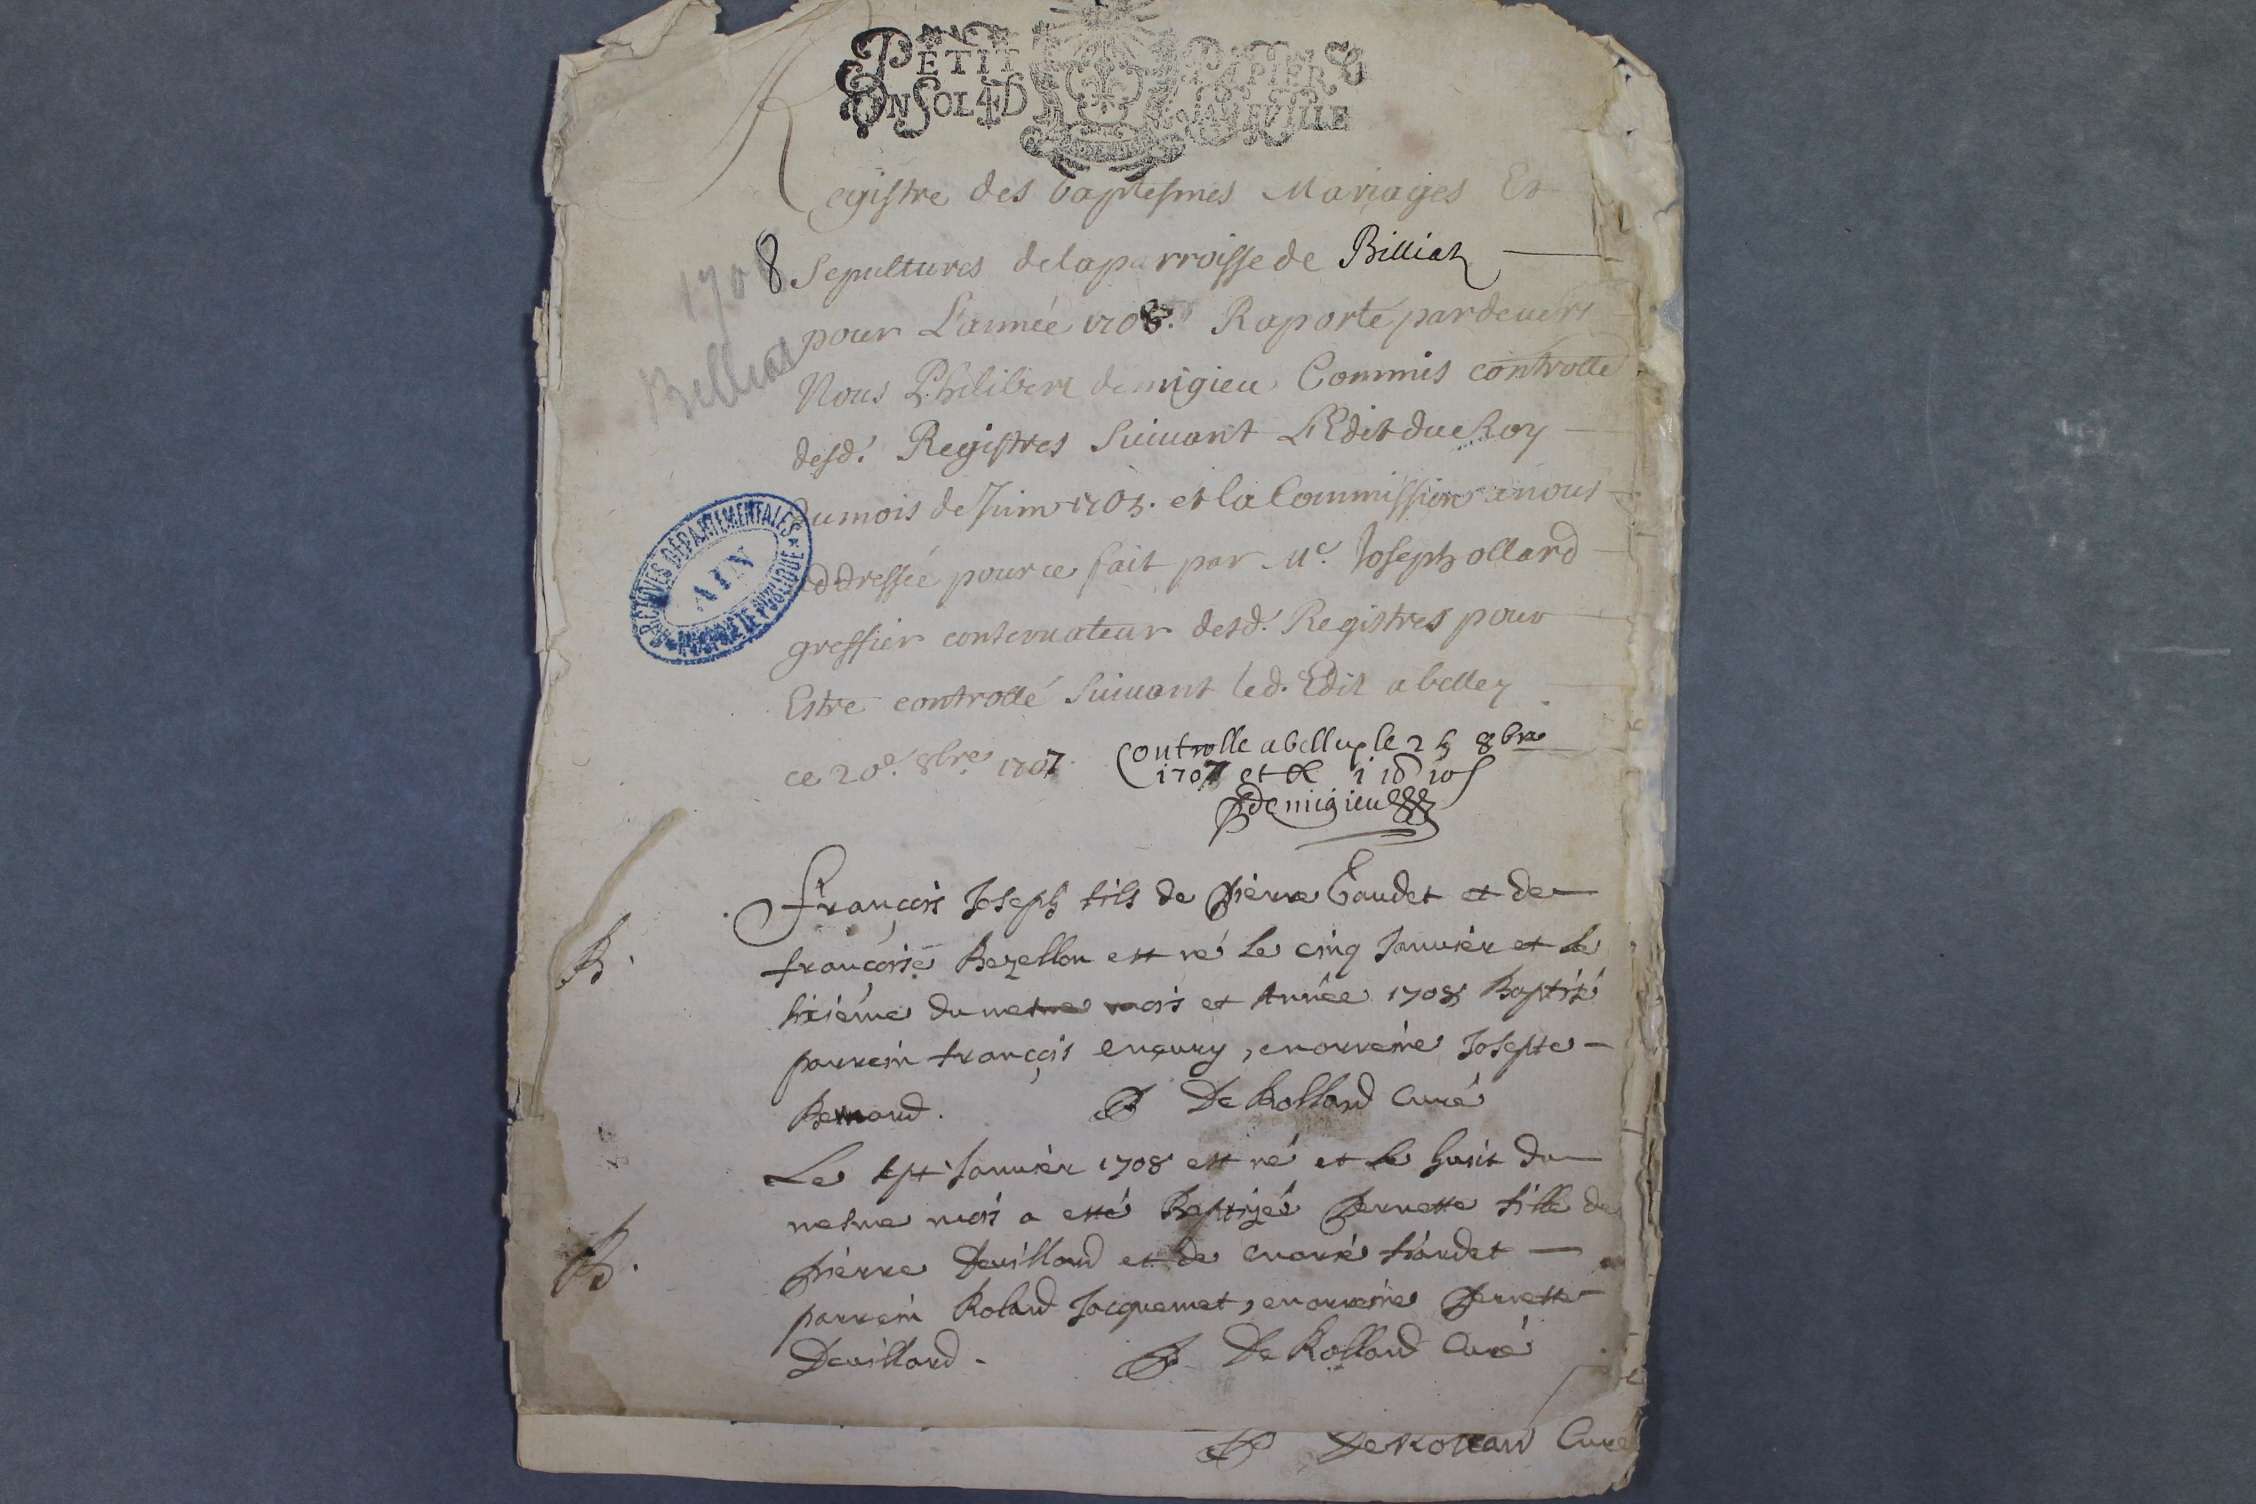 PETIT PAPIER
UN SOL 4 D
Registre des baptesmes Mariages Et
Sepultures de la parroisse de Billiat
pour L'année 1708. Raporté pardevers
Nous Philibert demigieu Commis controlle
desd. Registres Suiuant L'Edit du Roy
du mois de Juin 1705. et la Commission a nous
addressée pour ce fait par Me. Joseph ollard
greffier conseruateur desd. Registres pour
Estre controllé Suiuant led. Edit a belley
ce 20e. 8bre. 1707.
Controlle a belley le 25 8bre
1707 et
demigieu
1708
Billiat
ARCHIVES DÉPARTEMENTALES
AIN
B.
François Joseph fils de pierre Gaudet et de
françoise Bezellon est né le cinq Januier et le
sixiéme du mesme mois et Année 1708 Baptisé
parrein françois , marreine Josepte
Bernard. De Rolland Curé
B.
Le sept Januier 1708 est né et le huit du
mesme mois a esté Baptizéé pernette fille de
pierre Deuillard et de marie
parrein Roland Jacquemet, marreine pernette
Deuillard. De Rolland Curé
De Rolland Curé